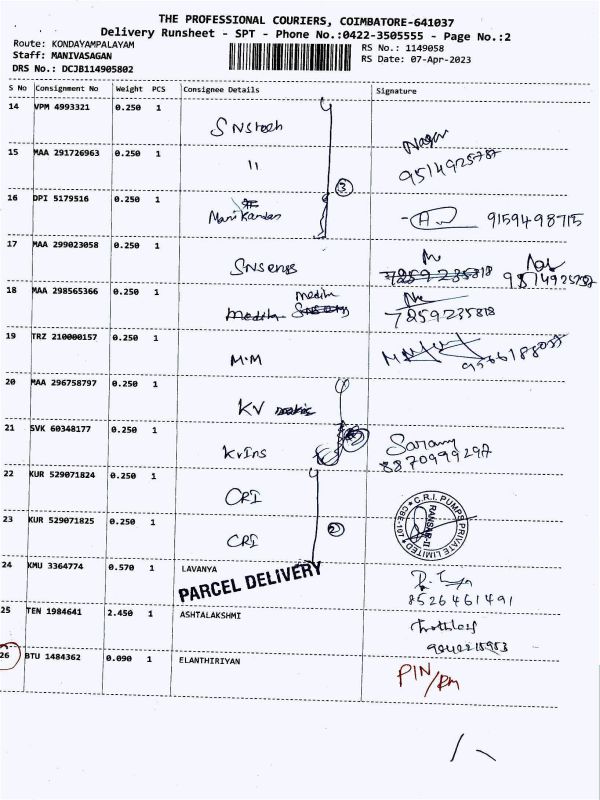 THE PROFESSIONAL COURIERS, COIMBATORE-641037
Delivery Runsheet - SPT - Phone No.:0422-3505555 - Page No.:2
Route: KONDAYAMPALAYAM RS No.: 1149058
Staff: MANIVASAGAN RS Date: 07-Apr-2023
DRS No.: DCJB114905802
S No Consignment No Weight PCS Consignee Details Signature
14 VPM 4993321 0.250 1 SNS tech
15 MAA 291726963 0.250 1 " Nagar 9514925787
16 DPI 5179516 0.250 1 Manikandan 9159498715
3
17 MAA 299023058 0.250 1 SNS engs 7259235818
18 MAA 298565366 0.250 1 7259235818
19 TRZ 210000157 0.250 1 M.M
20 MAA 296758797 0.250 1 KV
21 SVK 60348177 0.250 1 KvIns Sarany 8870999297
22 KUR 529071824 0.250 1 CRI
23 KUR 529071825 0.250 1 CRI
2
C.R.I. PUMPS PRIVATE LIMITED CBE-107
RANSAR-II
24 KMU 3364774 0.570 1 LAVANYA 8526461491
PARCEL DELIVERY
25 TEN 1984641 2.450 1 ASHTALAKSHMI
26 BTU 1484362 0.090 1 ELANTHIRIYAN PIN/RM